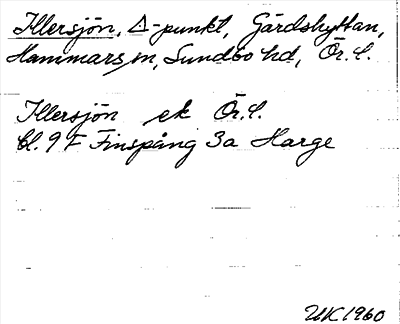 Illersjön, Δ-punkt, Gärdshyttan,
Hammars sn, Sundbo hd, Ör. l.
Illersjön ek Ör. l.
bl. 9 F Finspång 3a Harge
UK 1960